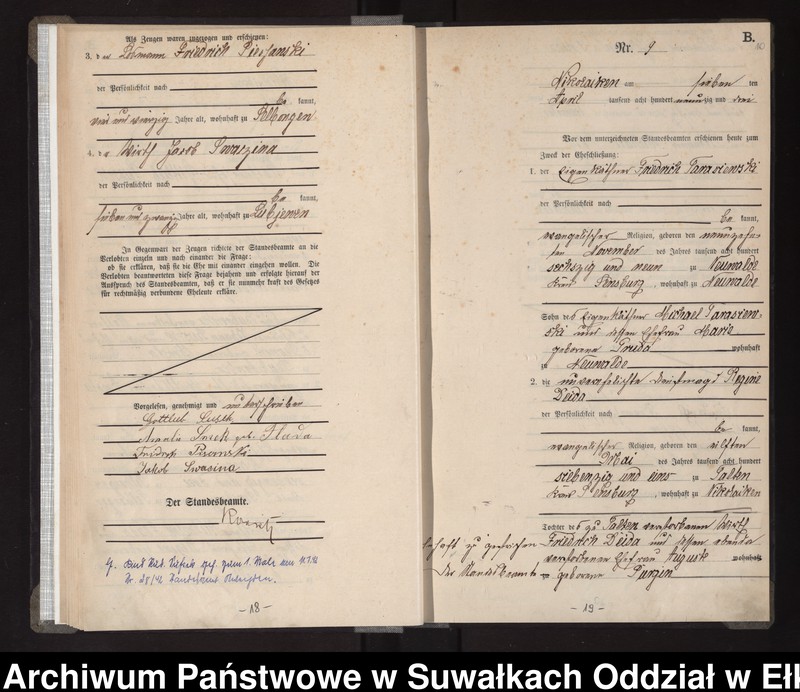 Als Zeugen waren zugezogen und erschienen:
3. der Friedrich
der Persönlichkeit nach
be kannt,
vier und vierzig Jahre alt, wohnhaft zu Selbongen
4. der Wirth Jacob Swaczina
der Persönlichkeit nach
be kannt,
sieben und zwanzig Jahre alt, wohnhaft zu Lubjewen
In Gegenwart der Zeugen richtete der Standesbeamte an die
Verlobten einzeln und nach einander die Frage:
ob sie erklären, daß sie die Ehe mit einander eingehen wollen. Die
Verlobten beantworteten diese Frage bejahend und erfolgte hierauf der
Ausspruch des Standesbeamten, daß er sie nunmehr kraft des Gesetzes
für rechtmäßig verbundene Eheleute erkläre.
Vorgelesen, genehmigt und unterschrieben
Gottlieb
geb.
Jakob Swasina
Der Standesbeamte.
- 18 -
B.
Nr. 9
Nikolaiken am sieben ten
April tausend acht hundert neunzig und drei
Vor dem unterzeichneten Standesbeamten erschienen heute zum
Zweck der Eheschließung:
1. der Eigenkäthner Friedrich Tarasienski
der Persönlichkeit nach
be kannt,
evangelischer Religion, geboren den neunzehn
ten November des Jahres tausend acht hundert
sechszig und neun zu Neuwalde
Kreis Sensburg, wohnhaft zu Neuwalde
Sohn des Eigenkäthner Michael Tarasien-
ski und dessen Ehefrau Marie
geborene wohnhaft
zu Neuwalde
2. die unverehelichte Dienstmagd Regine
Deida
der Persönlichkeit nach
be kannt,
evangelischer Religion, geboren den elften
Mai des Jahres tausend acht hundert
siebenzig und eins zu Salken
Kreis Sensburg, wohnhaft zu Nikolaiken
Tochter des zu Salken verstorbenen Wirth
Friedrich Deida und dessen ebenda
verstorbenen Ehefrau August wohnhaft
zu geborene
Der Standesbeamte
- 19 -
Archiwum Państwowe w Suwałkach Oddział w Ełk